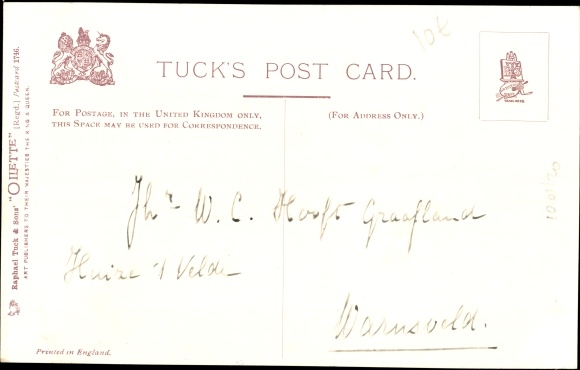 TUCK'S POST CARD.
FOR POSTAGE, IN THE UNITED KINGDOM ONLY,
THIS SPACE MAY BE USED FOR CORRESPONDENCE.
(FOR ADDRESS ONLY.)
Jhr W. C. Hooft Graafland
Huize 't Velde
Warnsveld.
Raphael Tuck & Sons' "OILETTE" (Regd.) Postcard 1746.
ART PUBLISHERS TO THEIR MAJESTIES THE KING & QUEEN.
Printed in England.